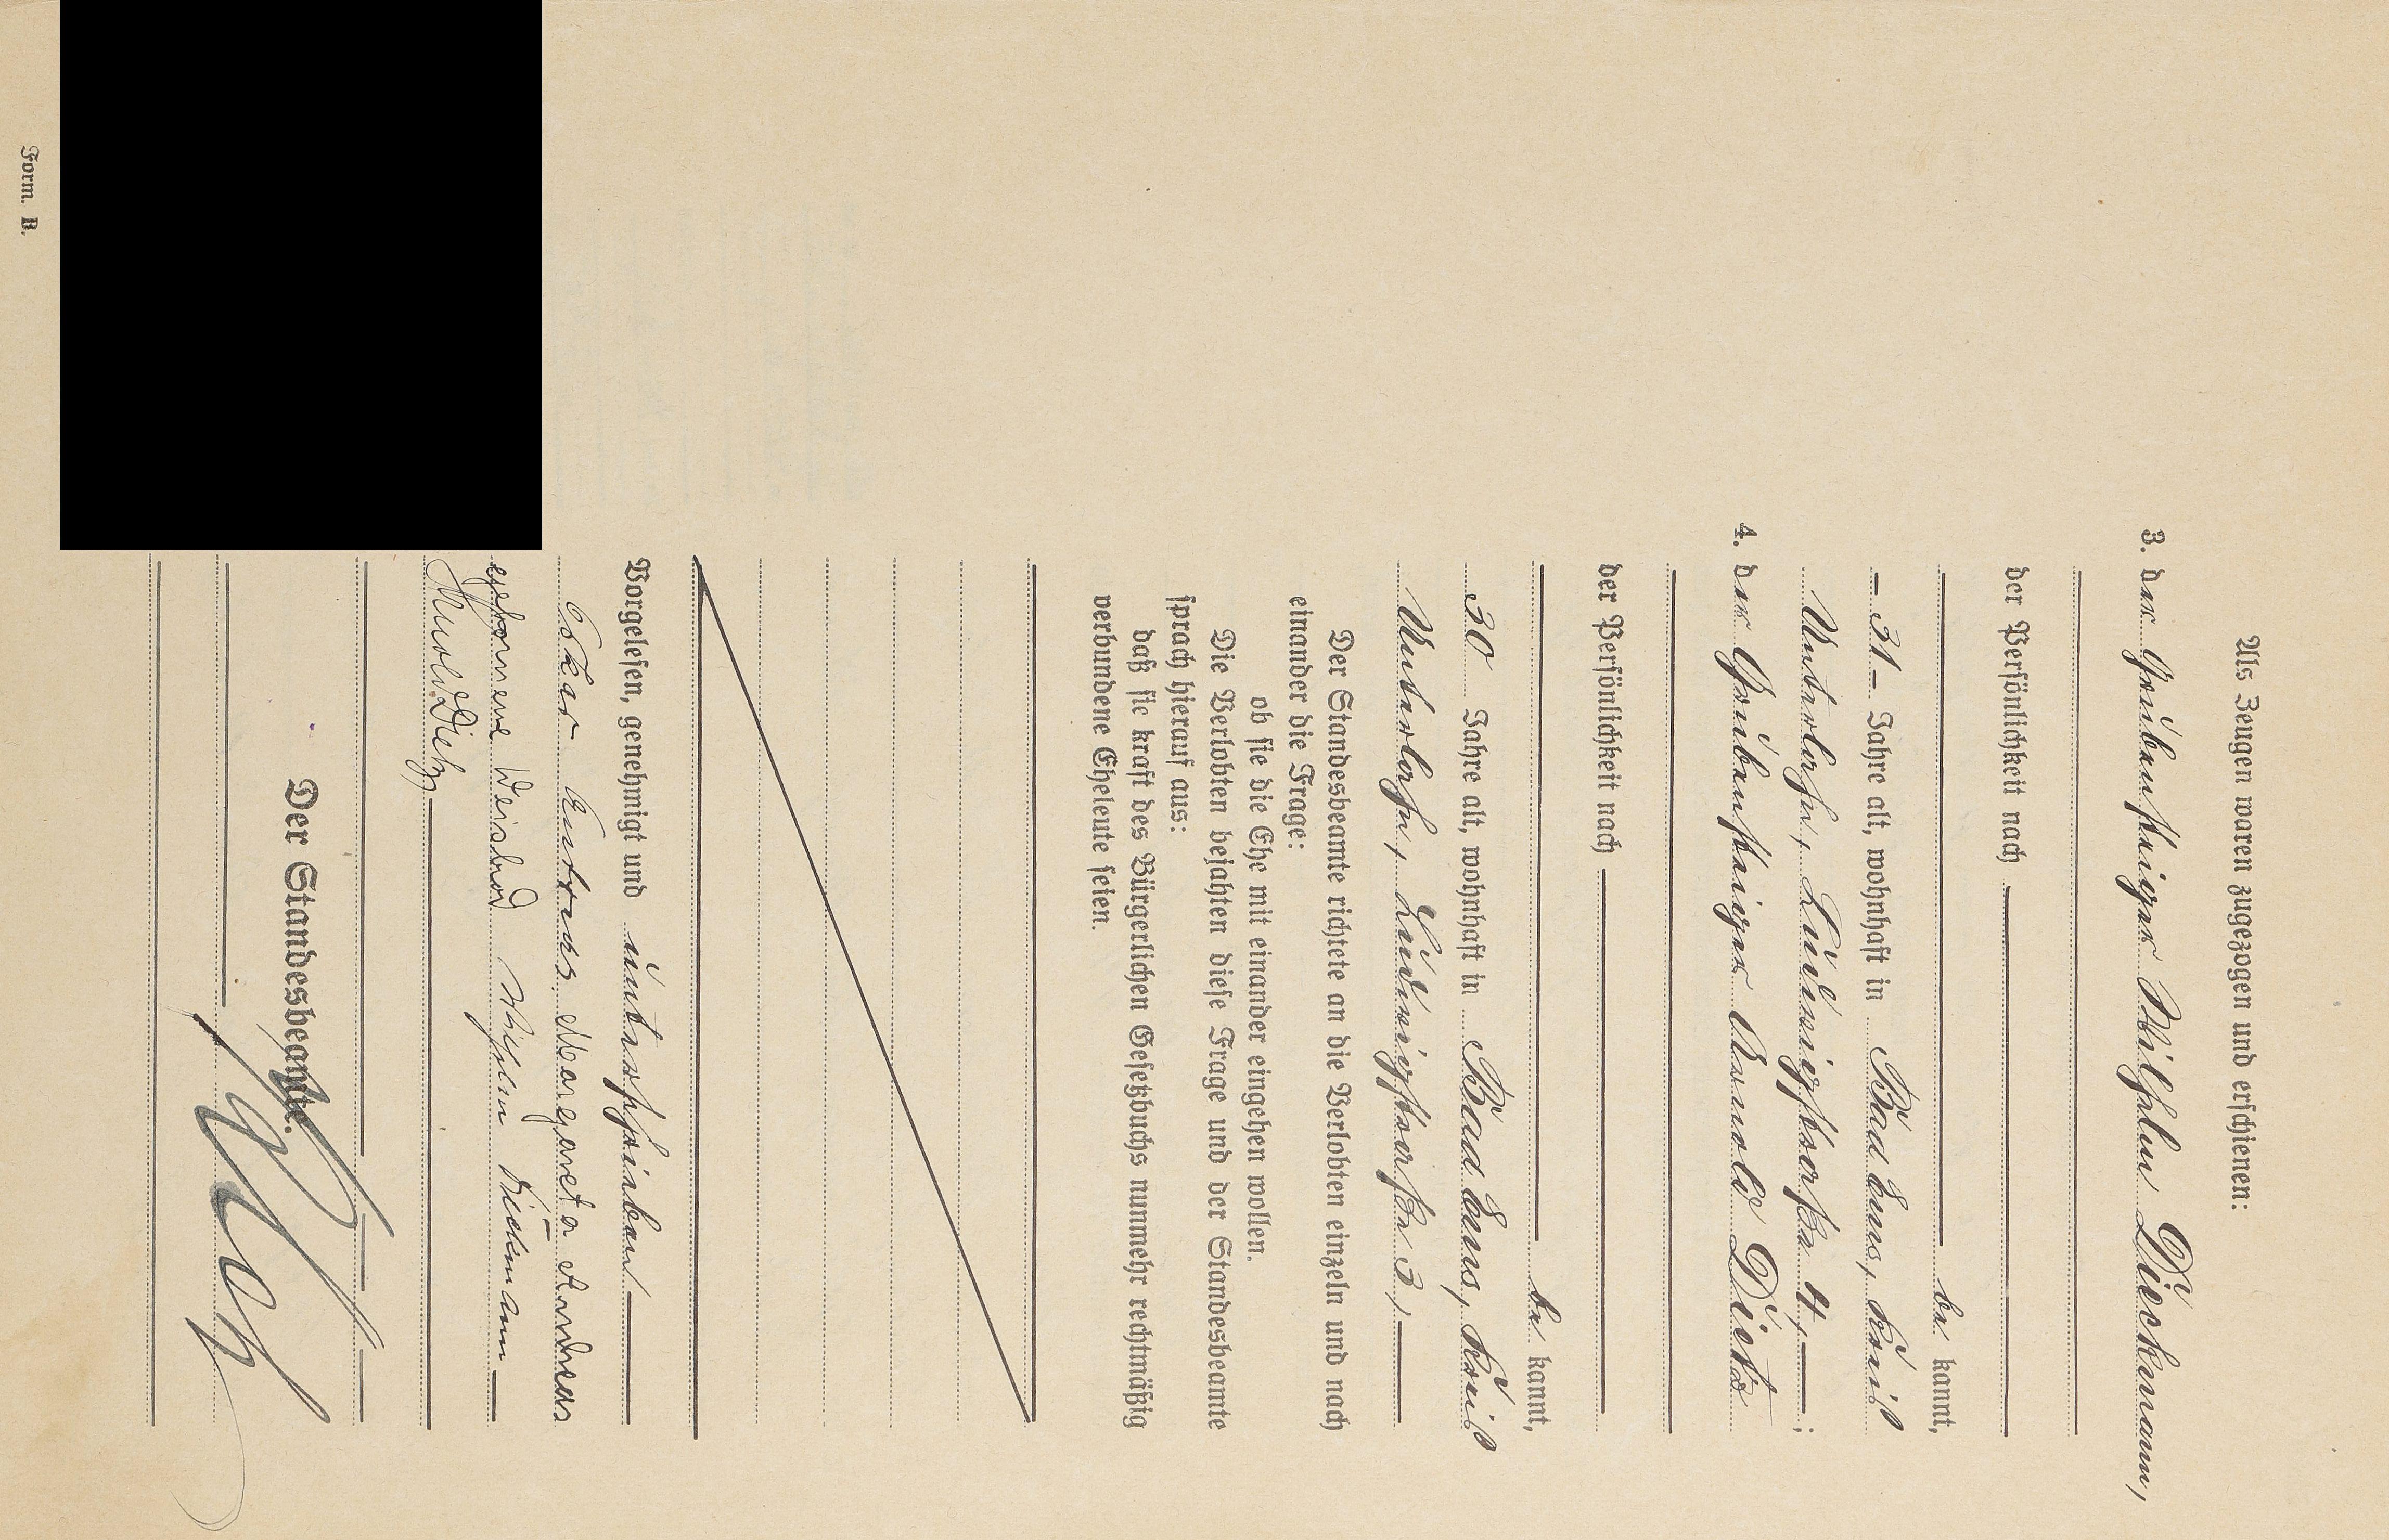 Als Zeugen waren zugezogen und erschienen:
3. der Grubensteiger Wilhelm Dieckmann,
der Persönlichkeit nach
be kannt,
31 Jahre alt, wohnhaft in Bad Ems, Kreis
Unterlahn, Ludwigstraße 4,;
4. der Grubensteiger Arnold Dietz
der Persönlichkeit nach
be kannt,
30 Jahre alt, wohnhaft in Bad Ems, Kreis
Unterlahn, Ludwigstraße 3,
Der Standesbeamte richtete an die Verlobten einzeln und nach
einander die Frage:
ob sie die Ehe mit einander eingehen wollen.
Die Verlobten bejahten diese Frage und der Standesbeamte
sprach hierauf aus:
daß sie kraft des Bürgerlichen Gesetzbuchs nunmehr rechtmäßig
verbundene Eheleute seien.
Vorgelesen, genehmigt und unterschrieben
Oskar Andreas Margareta Andreas
geborene Weisbrod Wilhelm Dieckmann
Arnold Dietz
Der Standesbeamte.
Form. B.